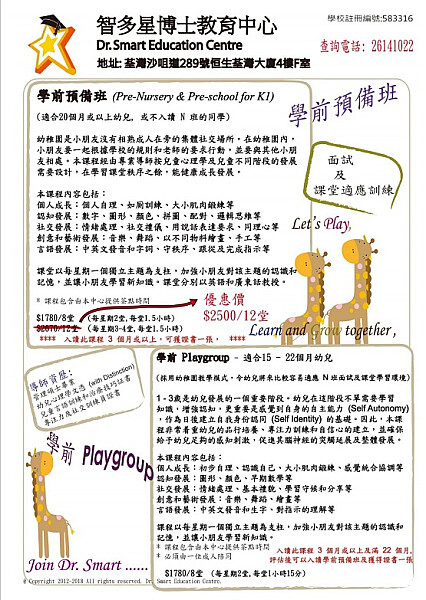 學校註冊編號:583316
智多星博士教育中心
Dr. Smart Education Centre
查詢電話: 26141022
地址: 荃灣沙咀道289號恒生荃灣大廈4樓F室
學前預備班 (Pre-Nursery & Pre-school for K1)
(適合20個月或以上幼兒, 或不入讀 N 班的同學)
幼稚園是小朋友沒有相熟成人在旁的集體社交場所, 在幼稚園內,
小朋友要一起根據學校的規則和老師的要求行動, 並要與其他小朋
友相處。本課程經由專業導師按兒童心理學及兒童不同階段的發展
需要設計, 在學習課堂秩序之餘, 能健康成長發展。
本課程內容包括:
個人成長: 個人自理、如廁訓練、大小肌肉鍛練等
認知發展: 數字、圖形、顏色、拼圖、配對、邏輯思維等
社交發展: 情緒處理、社交禮儀、用說話表達要求、同理心等
創意和藝術發展: 音樂、舞蹈、以不同物料繪畫、手工等
言語發展: 中英文發音和字詞、守秩序、跟從及完成指示等
課堂以每星期一個獨立主題為支柱, 加強小朋友對該主題的認識和
記憶, 並讓小朋友學習新知識。課堂分別以英語和廣東話教授。
* 課程包含由本中心提供茶點時間
$1780/8堂 (每星期2堂, 每堂1.5小時)
$2670/12堂 (每星期3-4堂, 每堂1.5小時)
優惠價
$2500/12堂
**** 入讀此課程 3 個月或以上, 可獲證書一張。 ****
學前預備班
面試
及
課堂適應訓練
Let's Play,
Learn and Grow together,
導師資歷:
管理碩士畢業
幼兒心理學文憑 (with Distinction)
兒童言語訓練和治療技巧證書
專注力及社交訓練員證書
學前 Playgroup
Join Dr. Smart ......
學前 Playgroup - 適合15 - 22個月幼兒
(採用幼稚園教學模式, 令幼兒將來比較容易適應 N 班面試及課堂學習環境)
1 - 3歲是幼兒發展的一個重要階段。幼兒在這階段不單需要學習
知識, 增強認知, 更重要是感覺到自身的自主能力 (Self Autonomy)
, 作為日後建立自我身份認同 (Self Identity) 的基礎。因此, 本課
程非常著重幼兒的品行培養、專注力訓練和自信心的建立, 並確保
給予幼兒足夠的感知刺激, 促進其腦神經的突觸延展及整體發展。
本課程內容包括:
個人成長: 初步自理、認識自己、大小肌肉鍛練、感覺統合協調等
認知發展: 圖形、顏色、早期數學等
社交發展: 情緒處理、基本禮貌、學習守候和分享等
創意和藝術發展: 音樂、舞蹈、繪畫等
言語發展: 中英文發音和生字、對指示的理解等
課程以每星期一個獨立主題為支柱, 加強小朋友對該主題的認識和
記憶, 並讓小朋友學習新知識。
* 課程包含由本中心提供茶點時間
* 必須由一位成人陪同
入讀此課程 3 個月或以上及滿 22 個月,
評估後可以入讀學前預備班及獲得證書一張
$1780/8堂 (每星期2堂, 每堂1小時15分)
© Copyright 2012-2018 All rights reserved. Dr. Smart Education Centre.